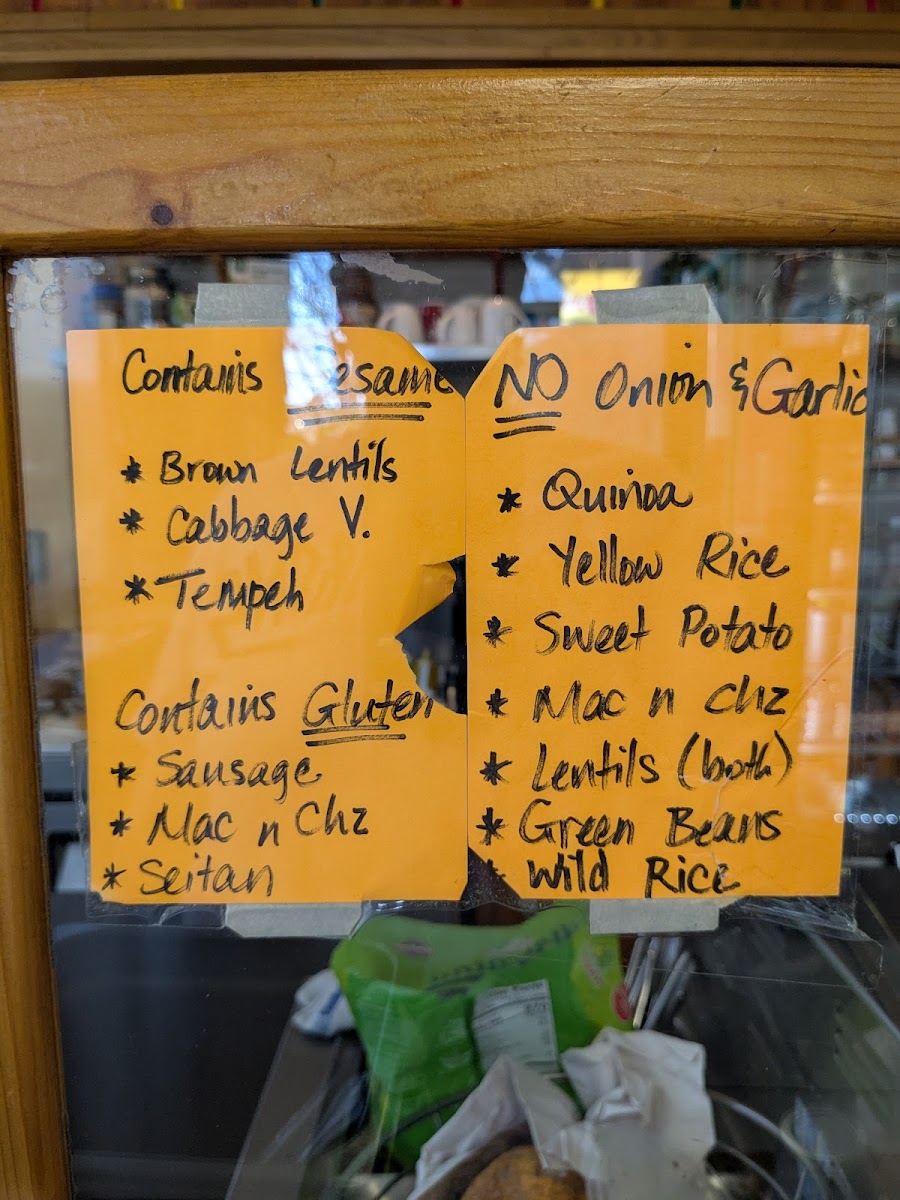 Contains Sesame
* Brown Lentils
* Cabbage V.
* Tempeh
Contains Gluten
* Sausage
* Mac n Chz
* Seitan
NO Onion & Garlic
* Quinoa
* Yellow Rice
* Sweet Potato
* Mac n chz
* Lentils (both)
* Green Beans
* Wild Rice